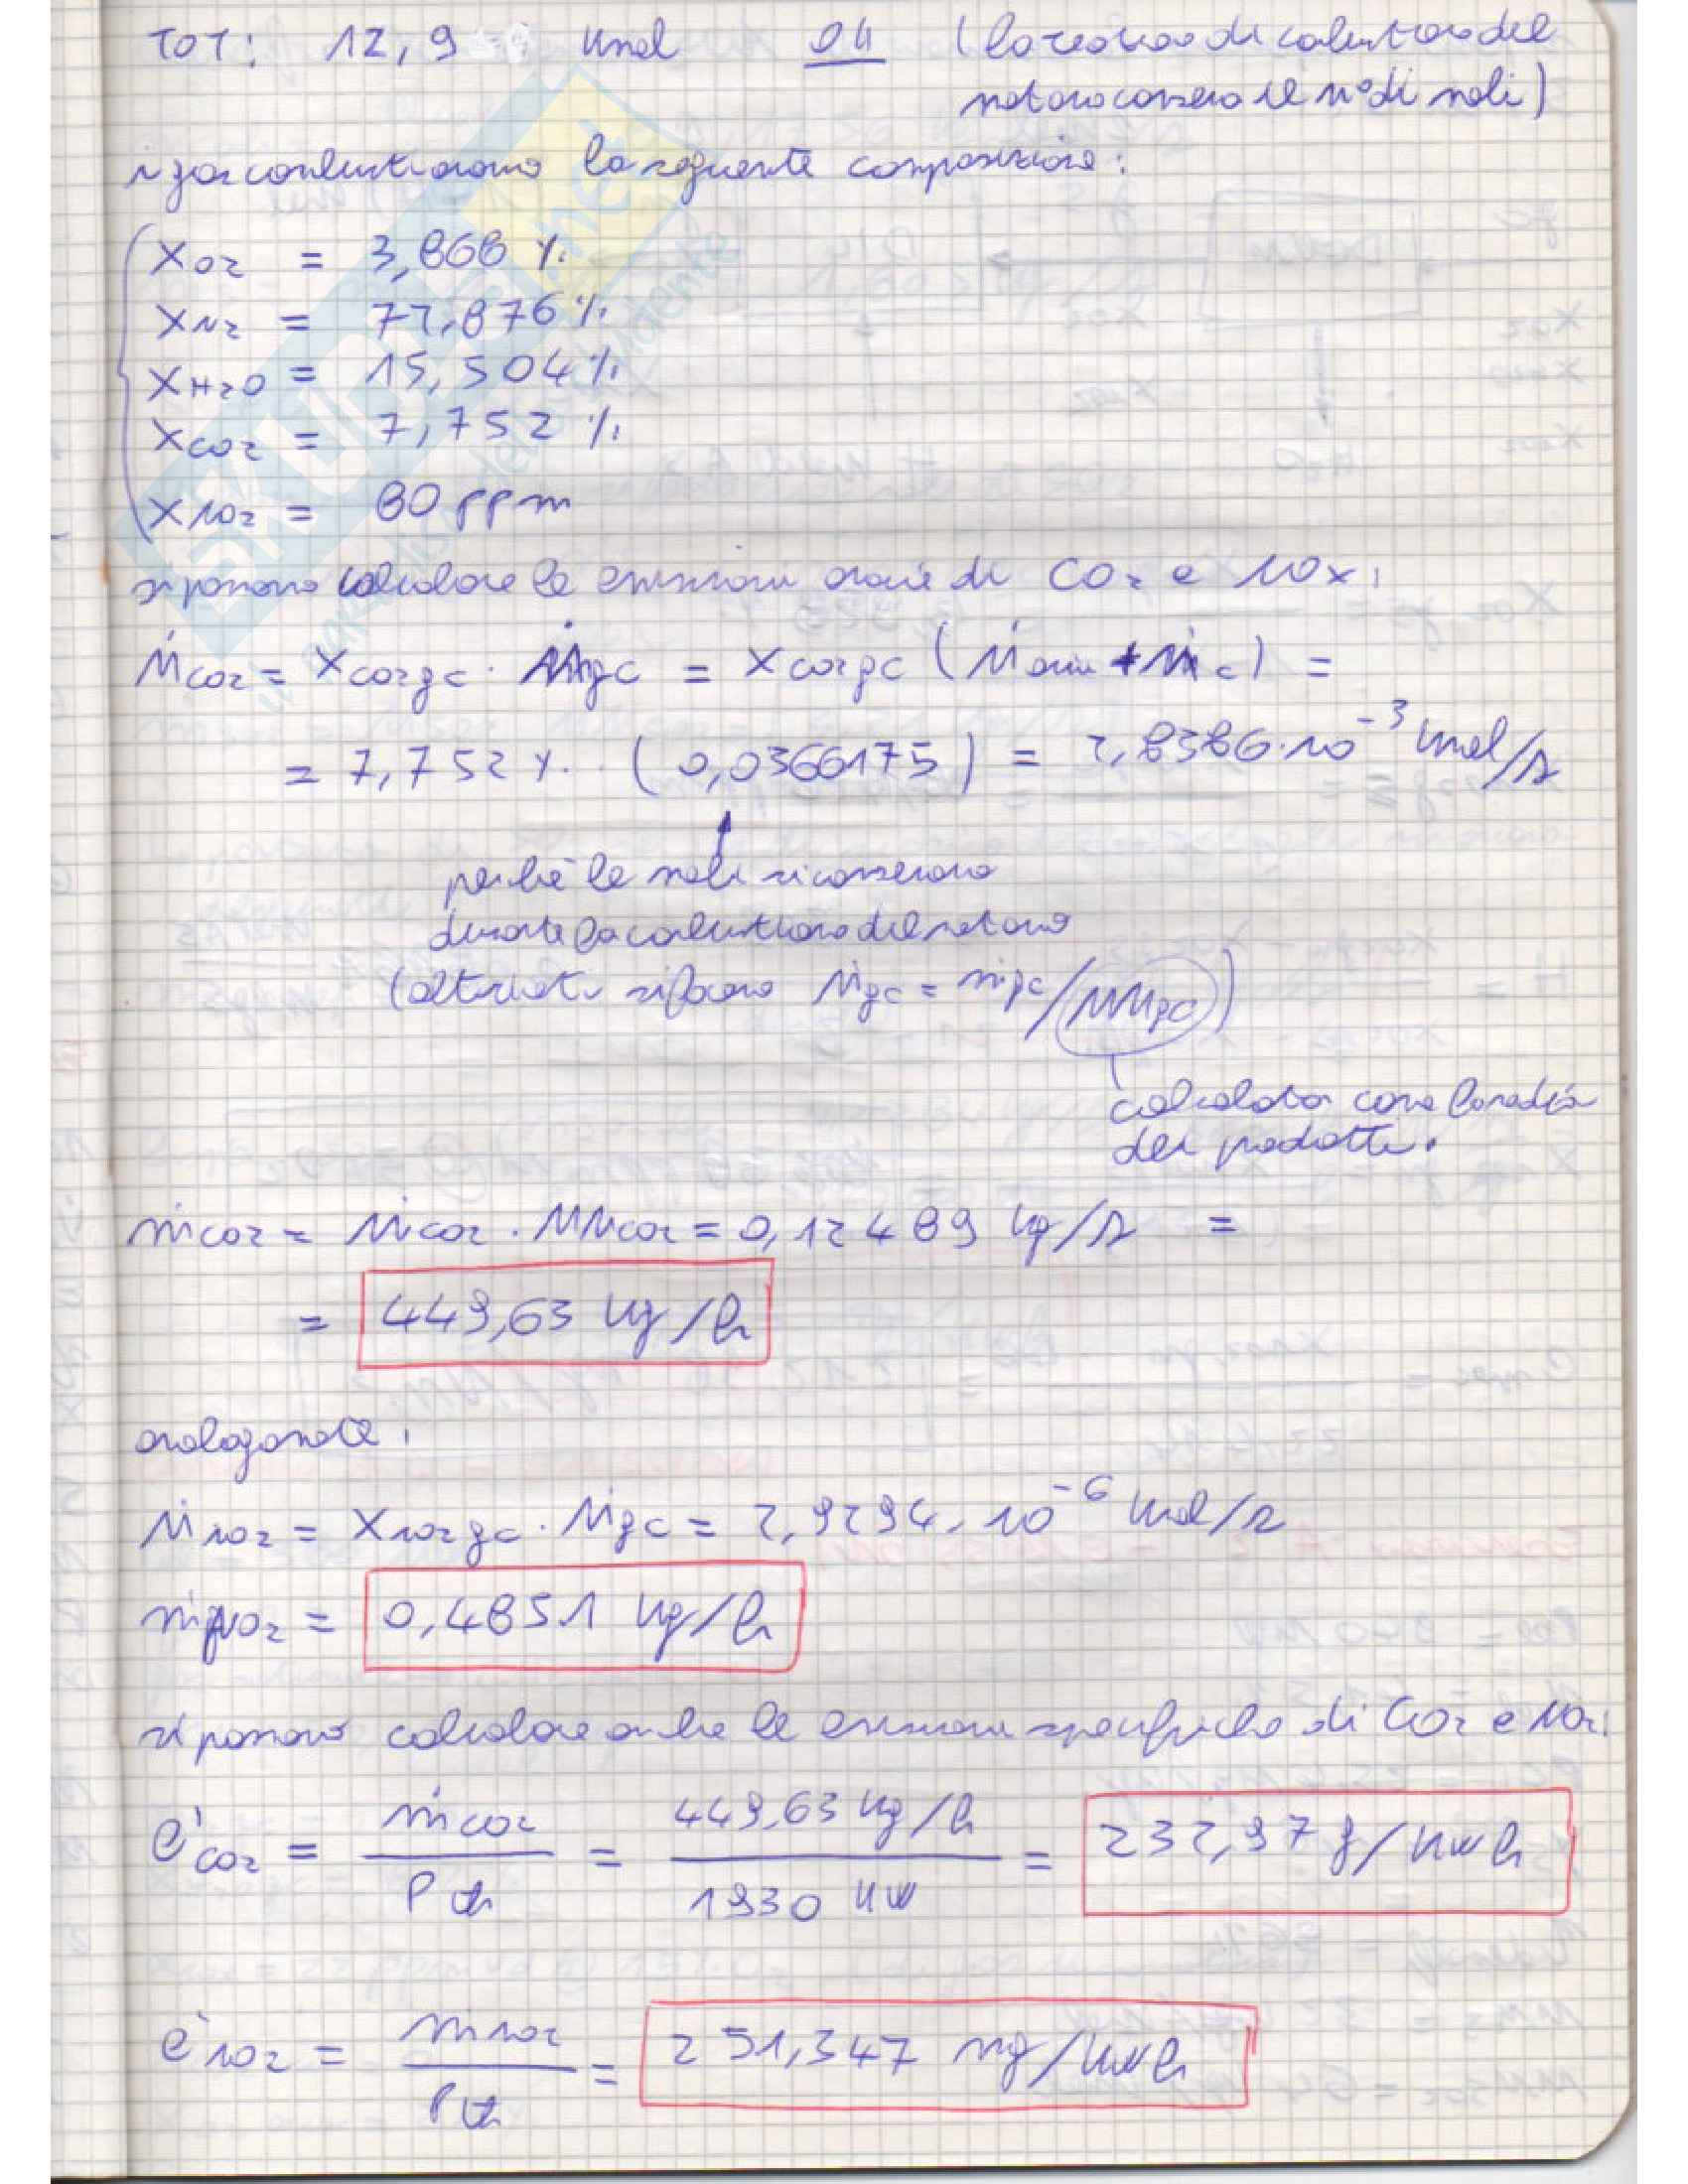 TOT: 12,9 kmol OK (la reazione di combustione del
metano conserva il n° di moli)
i gas combusti hanno la seguente composizione:
XO2 = 3,868 %
XN2 = 72,876 %
XH2O = 15,504 %
XCO2 = 7,752 %
XNO2 = 80 ppm
si possono calcolare le emissioni orarie di CO2 e NOx:
ṄCO2 = XCO2gc · Ṅgc = XCO2gc (Ṅaria + Ṅc) =
= 7,752 % · (0,0366175) = 2,8386·10⁻³ kmol/s
perché le moli si conservano
durante la combustione del metano
(altrimenti si faceva Ṅgc = ṁgc/MMgc)
calcolata come la media
dei prodotti.
ṁCO2 = ṄCO2 · MMCO2 = 0,12489 kg/s =
= 449,63 kg/h
analogamente:
ṄNO2 = XNO2gc · Ṅgc = 2,9294·10⁻⁶ kmol/s
ṁNO2 = 0,4851 kg/h
si possono calcolare anche le emissioni specifiche di CO2 e NO2:
e'CO2 = ṁCO2 / Pth = 449,63 kg/h / 1930 kW = 232,97 g/kWh
e'NO2 = ṁNO2 / Pth = 251,347 mg/kWh
SKUOLA.net